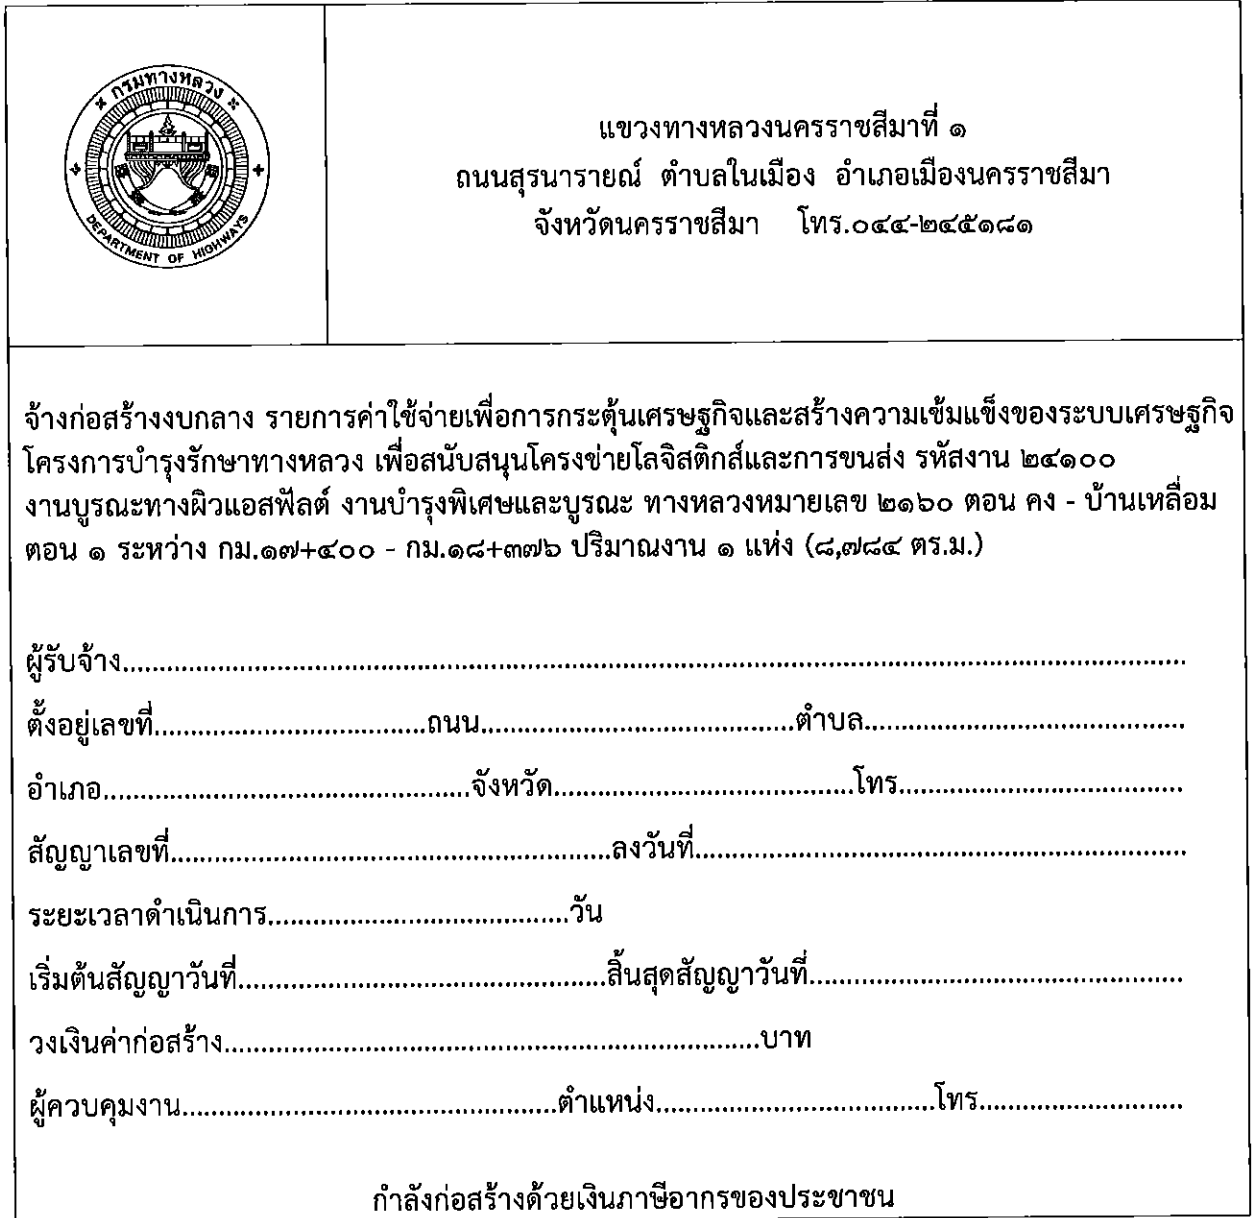 กรมทางหลวง
DEPARTMENT OF HIGHWAYS
แขวงทางหลวงนครราชสีมาที่ ๑
ถนนสุรนารายณ์ ตำบลในเมือง อำเภอเมืองนครราชสีมา
จังหวัดนครราชสีมา โทร.๐๔๔-๒๔๕๑๘๑
จ้างก่อสร้างงบกลาง รายการค่าใช้จ่ายเพื่อการกระตุ้นเศรษฐกิจและสร้างความเข้มแข็งของระบบเศรษฐกิจ
โครงการบำรุงรักษาทางหลวง เพื่อสนับสนุนโครงข่ายโลจิสติกส์และการขนส่ง รหัสงาน ๒๔๑๐๐
งานบูรณะทางผิวแอสฟัลต์ งานบำรุงพิเศษและบูรณะ ทางหลวงหมายเลข ๒๑๖๐ ตอน คง - บ้านเหลื่อม
ตอน ๑ ระหว่าง กม.๑๗+๔๐๐ - กม.๑๘+๓๗๖ ปริมาณงาน ๑ แห่ง (๘,๗๘๔ ตร.ม.)
ผู้รับจ้าง..........
ตั้งอยู่เลขที่..........ถนน..........ตำบล..........
อำเภอ..........จังหวัด..........โทร..........
สัญญาเลขที่..........ลงวันที่..........
ระยะเวลาดำเนินการ..........วัน
เริ่มต้นสัญญาวันที่..........สิ้นสุดสัญญาวันที่..........
วงเงินค่าก่อสร้าง..........บาท
ผู้ควบคุมงาน..........ตำแหน่ง..........โทร..........
กำลังก่อสร้างด้วยเงินภาษีอากรของประชาชน